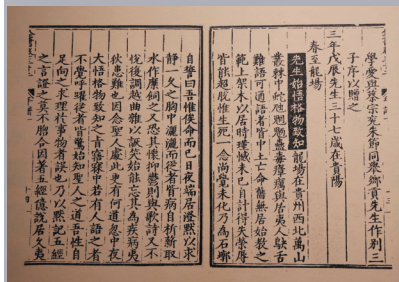 學愛與蔡宗兗朱節同舉鄉貢先生作別三
子序以贈之
三年戊辰先生三十七歲在貴陽
春至龍場
先生始悟格物致知龍場在貴州西北萬山
叢棘中蛇虺魍魎蠱毒瘴癘與居夷人鴃舌
難語可通語者皆中土亡命舊無居始教之
範土架木以居時瑾憾未已自計得失榮辱
皆能超脫惟生死一念尚覺未化乃為石墎
自誓曰吾惟俟命而已日夜端居澄默以求
靜一久之胸中灑灑而從者皆病自析薪取
水作糜飼之又恐其懷抑鬱則與歌詩又不
悅復調越曲雜以詼笑始能忘其為疾病夷
狄患難也因念聖人處此更有何道忽中夜
大悟格物致知之旨寤寐中若有人語之者
不覺呼躍從者皆驚始知聖人之道吾性自
足向之求理於事物者誤也乃以默記五經
之言證之莫不脗合因著五經憶說居久夷